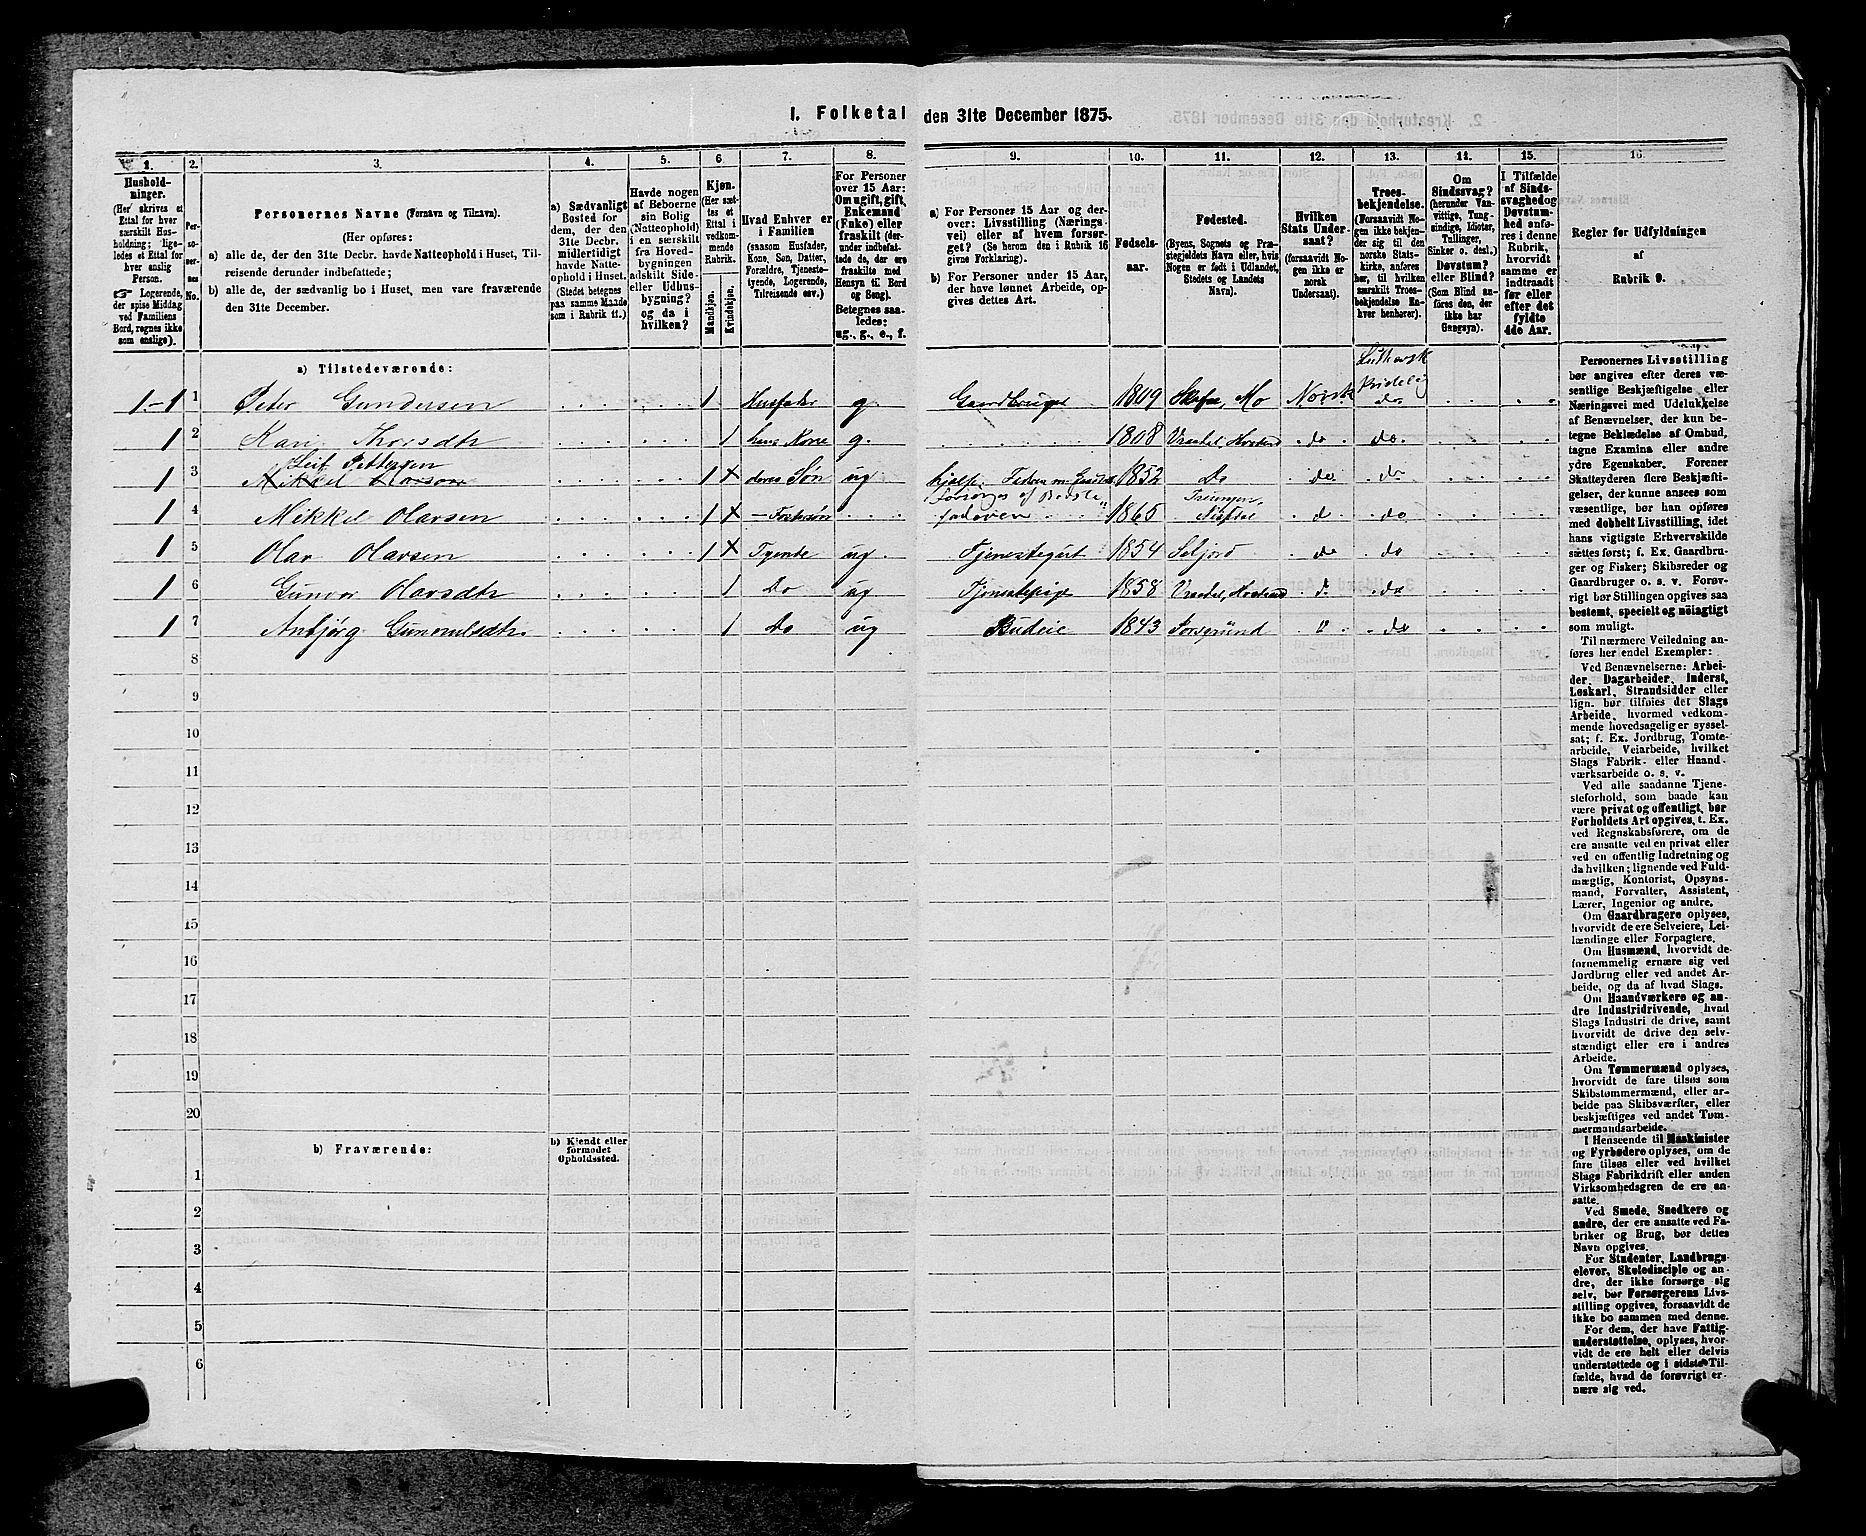 I. Folketal den 31te December 1875.
1. 2. 3. 4. 5. 6. 7. 8. 9. 10. 11. 12. 13. 14. 15. 16.
Hushold-
ninger.
(Her skrives et
Ettal for hver
særskilt Hus-
holdning; lige-
ledes et Ettal for
hver enslig
Person.
☞ Logerende,
der spise Middag
ved Familiens
Bord, regnes ikke
som enslige).
Per-
so-
ner-
nes
No.
Personernes Navne (Fornavn og Tilnavn).
(Her opføres:
a) alle de, der den 31te Decbr. havde Natteophold i Huset, Til-
reisende derunder indbefattede;
b) alle de, der sædvanlig bo i Huset, men vare fraværende
den 31te December.
a) Sædvanligt
Bosted for
dem, der den
31te Decbr.
midlertidigt
havde Natte-
ophold i Huset.
(Stedet betegnes
paa samme Maade
som i Rubrik 11.)
Havde nogen
af Beboerne
sin Bolig
(Natteophold)
i en særskilt
fra Hoved-
bygningen
adskilt Side-
eller Udhus-
bygning?
og da i
hvilken?
Kjøn.
(Her sæt-
tes et
Ettal i
vedkom-
mende
Rubrik.
Mandkjøn.
Kvindekjøn.
Hvad Enhver er
i Familien
(saasom Husfader,
Kone, Søn, Datter,
Forældre, Tjeneste-
tyende, Logerende,
Tilreisende osv.)
For Personer
over 15 Aar:
Om ugift, gift,
Enkemand
(Enke) eller
fraskilt (der-
under indbefat-
tede de, der ere
fraskilte med
Hensyn til Bord
og Seng).
Betegnes saa-
ledes:
ug., g., e., f.
a) For Personer 15 Aar og der-
over: Livsstilling (Nærings-
vei) eller af hvem forsør-
get? (Se herom den i Rubrik 16
givne Forklaring).
b) For Personer under 15 Aar,
der have lønnet Arbeide, op-
gives dettes Art.
Fødsels-
aar.
Fødested.
(Byens, Sognets og Præ-
stegjeldets Navn eller, hvis
Nogen er født i Udlandet,
Stedets og Landets
Navn).
Hvilken
Stats Under-
saat?
(forsaavidt No-
gen ikke er
norsk
Undersaat).
Troes-
bekjendelse.
(Forsaavidt No-
gen ikke bekjen-
der sig til den
norske Stats-
kirke, anføres
her, til hvilken
særskilt Troes-
bekjendelse En-
hver henhører).
Om
Sindssvag?
(herunder Van-
vittige, Tung-
sindige, Idioter,
Tullinger,
Sinker o. desl.).
Døvstum?
eller Blind?
(Som Blind an-
føres den, der
ikke har
Gangsyn).
I Tilfælde
af Sinds-
svaghed og
Døvstum-
hed anfø-
res i denne
Rubrik,
hvorvidt
samme er
indtraadt
før eller
efter det
fyldte
4de Aar.
Regler for Udfyldningen
af
Rubrik 9.
a) Tilstedeværende:
Luthersk
1-1 1 Peter Gundersen 1 Husfader g. Gaardbruger 1809 Mo Norsk do
1 2 Kari Thorsdtr 1 hans Kone g. 1808 do do
Leif Pettersen
1 3 Mikkel Olavsen 1 X deres Søn ug 1852 Do do do
forsørges af
1 4 Mikkel Olavsen 1 X Fostersøn 1865 Nissedal d do
1 5 Olav Olavsen 1 X Tyende ug. Tjenestegut 1854 Seljord do do
1 6 Gunvor Olavsdtr 1 Do ug Tjenestepige 1858 d. do
1 7 Anbjørg Gunnulsdtr. 1 Do ug Budeie 1843 Porsgrund " do
8
9
10
11
12
13
14
15
16
17
18
19
20
b) Fraværende:
b) Kjendt eller
formodet
Opholdssted.
1
2
3
4
5
6
Personernes Livsstilling
bør angives efter deres væ-
sentlige Beskjæftigelse eller
Næringsvei med Udelukkelse
af Benævnelser, der kun be-
tegne Beklædelse af Ombud,
tagne Examina eller andre
ydre Egenskaber. Forener
Skatteyderen flere Beskjæfti-
gelser, der kunne ansees som
væsentlige, bør han opføres
med dobbelt Livsstilling, idet
hans vigtigste Erhvervskilde
sættes først; f. Ex. Gaardbru-
ger og Fisker; Skibsreder og
Gaardbruger o. s. v. Forøv-
rigt bør Stillingen opgives saa
bestemt, specielt og nøiagtigt
som muligt.
Til nærmere Veiledning an-
føres her endel Exempler:
Ved Benævnelserne: Arbei-
der, Dagarbeider, Inderst,
Løskarl, Strandsidder eller
lign. bør tilføies det Slags
Arbeide, hvormed vedkom-
mende hovedsagelig er syssel-
sat; f. Ex. Jordbrug, Tomte-
arbeide, Veiarbeide, hvilket
Slags Fabrik- eller Haand-
værksarbeide o. s. v.
Ved alle saadanne Tjene-
steforhold, som baade kan
være privat og offentligt, bør
Forholdets Art opgives, t. Ex.
ved Regnskabsførere, om de
ere ansatte ved en privat eller
ved en offentlig Indretning og
da hvilken; lignende ved Fuld-
mægtig, Kontorist, Opsyns-
mand, Forvalter, Assistent,
Lærer, Ingeniør og andre.
Om Gaardbrugere oplyses,
hvorvidt de ere Selveiere, Lei-
lændinge eller Forpagtere.
Om Husmænd, hvorvidt de
fornemmelig ernære sig ved
Jordbrug eller ved andet Ar-
beide, og da af hvad Slags.
Om Haandværkere og an-
dre Industridrivende, hvad
Slags Industri de drive, samt
hvorvidt de drive den selv-
stændigt eller ere i andres
Arbeide.
Om Tømmermænd oplyses,
hvorvidt de fare tilsøs som
Skibstømmermænd, eller ar-
beide paa Skibsværfter, eller
beskjæftiges ved andet Tøm-
mermandsarbeide.
I Henseende til Maskinister
og Fyrbødere oplyses, om de
fare tilsøs eller ved hvilket
Slags Fabrikdrift eller anden
Virksomhedsgren de ere an-
satte.
Ved Smede, Snedkere og
andre, der ere ansatte ved Fa-
briker og Brug, bør dettes
Navn opgives.
For Studenter, Landbrugs-
elever, Skoledisciple og an-
dre, der ikke forsørge sig
selv, bør Forsørgerens Livs-
stilling opgives, forsaavidt de
ikke bo sammen med denne.
For dem, der have Fattig-
understøttelse, oplyses, hvor-
vidt de ere helt eller delvis
understøttede og i sidste Til-
fælde, hvad de forøvrigt er-
nære sig ved.